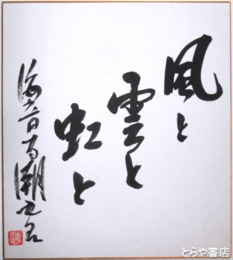 風と
雲と
虹と
海音寺潮五郎
とらや書店